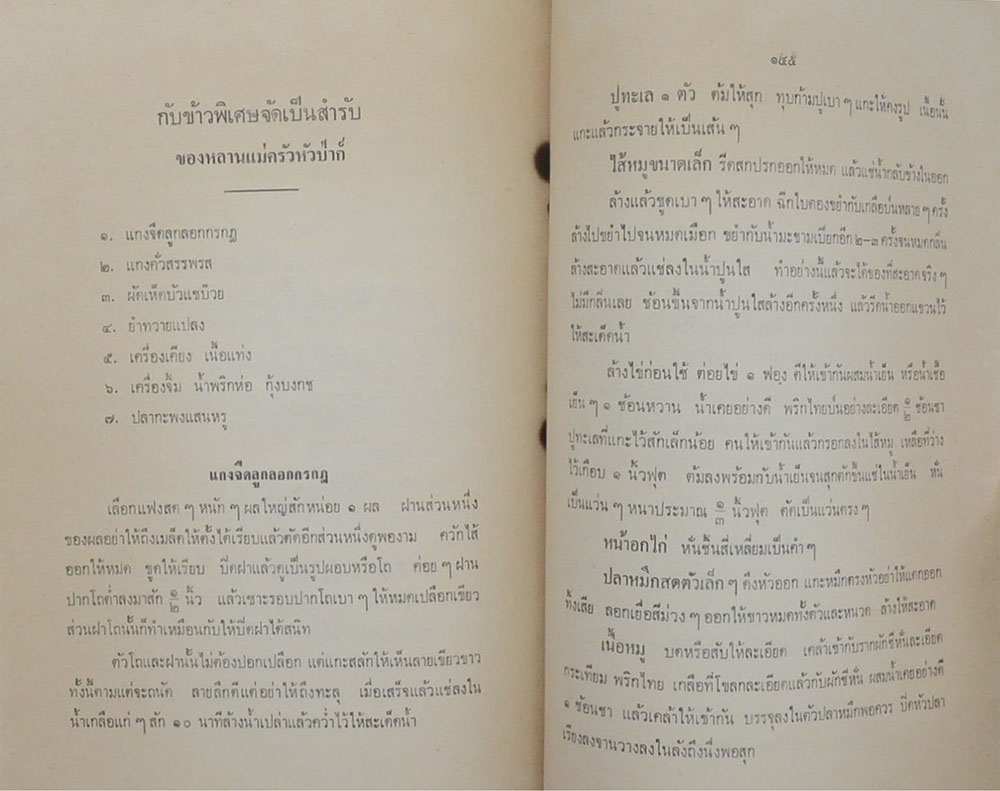 กับข้าวพิเศษจัดเป็นสำรับ
ของหลานแม่ครัวหัวป่าก์
๑. แกงจืดลูกลอกกรกฎ
๒. แกงคั่วสรรพรส
๓. ผัดเห็ดบัวแชบ๊วย
๔. ยำทวายแปลง
๕. เครื่องเคียง เนื้อแท่ง
๖. เครื่องจิ้ม น้ำพริกห่อ กุ้งบงกช
๗. ปลากะพงแสนหรู
แกงจืดลูกลอกกรกฎ
เลือกแฟงสด ๆ หนัก ๆ ผลใหญ่สักหน่อย ๑ ผล ฝานส่วนหนึ่ง
ของผลอย่าให้ถึงเมล็ดให้ตั้งได้เรียบแล้วตัดอีกส่วนหนึ่งดูพองาม ควักไส้
ออกให้หมด ขูดให้เรียบ ปิดฝาแล้วดูเป็นรูปผอบหรือโถ ค่อย ๆ ฝาน
ปากโถต่ำลงมาสัก ๑/๒ นิ้ว แล้วเซาะรอบปากโถเบา ๆ ให้หมดเปลือกเขียว
ส่วนฝาโถนั้นก็ทำเหมือนกับให้ปิดฝาได้สนิท
ตัวโถและฝานั้นไม่ต้องปอกเปลือก แต่แกะสลักให้เห็นลายเขียวขาว
ทั้งนี้ตามแต่จะถนัด ลายลึกดีแต่อย่าให้ถึงทะลุ เมื่อเสร็จแล้วแช่ลงใน
น้ำเกลือแก่ ๆ สัก ๑๐ นาทีล้างน้ำเปล่าแล้วคว่ำไว้ให้สะเด็ดน้ำ
๑๕๕
ปูทะเล ๑ ตัว ต้มให้สุก ทุบก้ามปูเบา ๆ แกะให้คงรูป เนื้อนั้น
แกะแล้วกระจายให้เป็นเส้น ๆ
ไส้หมูขนาดเล็ก รีดสกปรกออกให้หมด แล้วแช่น้ำกลับข้างในออก
ล้างแล้วขูดเบา ๆ ให้สะอาด ฉีกใบตองขยำกับเกลือป่นหลาย ๆ ครั้ง
ล้างไปขยำไปจนหมดเมือก ขยำกับน้ำมะขามเปียกอีก ๒-๓ ครั้งจนหมดกลิ่น
ล้างสะอาดแล้วแช่ลงในน้ำปูนใส ทำอย่างนี้แล้วจะได้ของที่สะอาดจริง ๆ
ไม่มีกลิ่นเลย ช้อนขึ้นจากน้ำปูนใสล้างอีกครั้งหนึ่ง แล้วรีดน้ำออกแขวนไว้
ให้สะเด็ดน้ำ
ล้างไข่ก่อนใช้ ต่อยไข่ ๑ ฟอง ตีให้เข้ากันผสมน้ำเย็น หรือน้ำเชื้อ
เย็น ๆ ๑ ช้อนหวาน น้ำเคยอย่างดี พริกไทยป่นอย่างละเอียด ๑/๒ ช้อนชา
ปูทะเลที่แกะไว้สักเล็กน้อย คนให้เข้ากันแล้วกรอกลงในไส้หมู เหลือที่ว่าง
ไว้เกือบ ๑ นิ้วฟุต ต้มลงพร้อมกับน้ำเย็นจนสุกตักขึ้นแช่ในน้ำเย็น หั่น
เป็นแว่น ๆ หนาประมาณ ๑/๓ นิ้วฟุต ตัดเป็นแว่นตรง ๆ
หน้าอกไก่ หั่นชิ้นสี่เหลี่ยมเป็นคำ ๆ
ปลาหมึกสดตัวเล็ก ๆ ดึงหัวออก แกะหมึกตรงหัวอย่าให้แตกออก
ทิ้งเสีย ลอกเยื่อสีม่วง ๆ ออกให้ขาวหมดทั้งตัวและหนวด ล้างให้สะอาด
เนื้อหมู บดหรือสับให้ละเอียด เคล้าเข้ากับรากผักชีหั่นละเอียด
กระเทียม พริกไทย เกลือที่โขลกละเอียดแล้วกับผักชีหั่น ผสมน้ำเคยอย่างดี
๑ ช้อนชา แล้วเคล้าให้เข้ากัน บรรจุลงในตัวปลาหมึกพอควร ปิดหัวปลา
เรียงลงจานวางลงในลังถึงนึ่งพอสุก